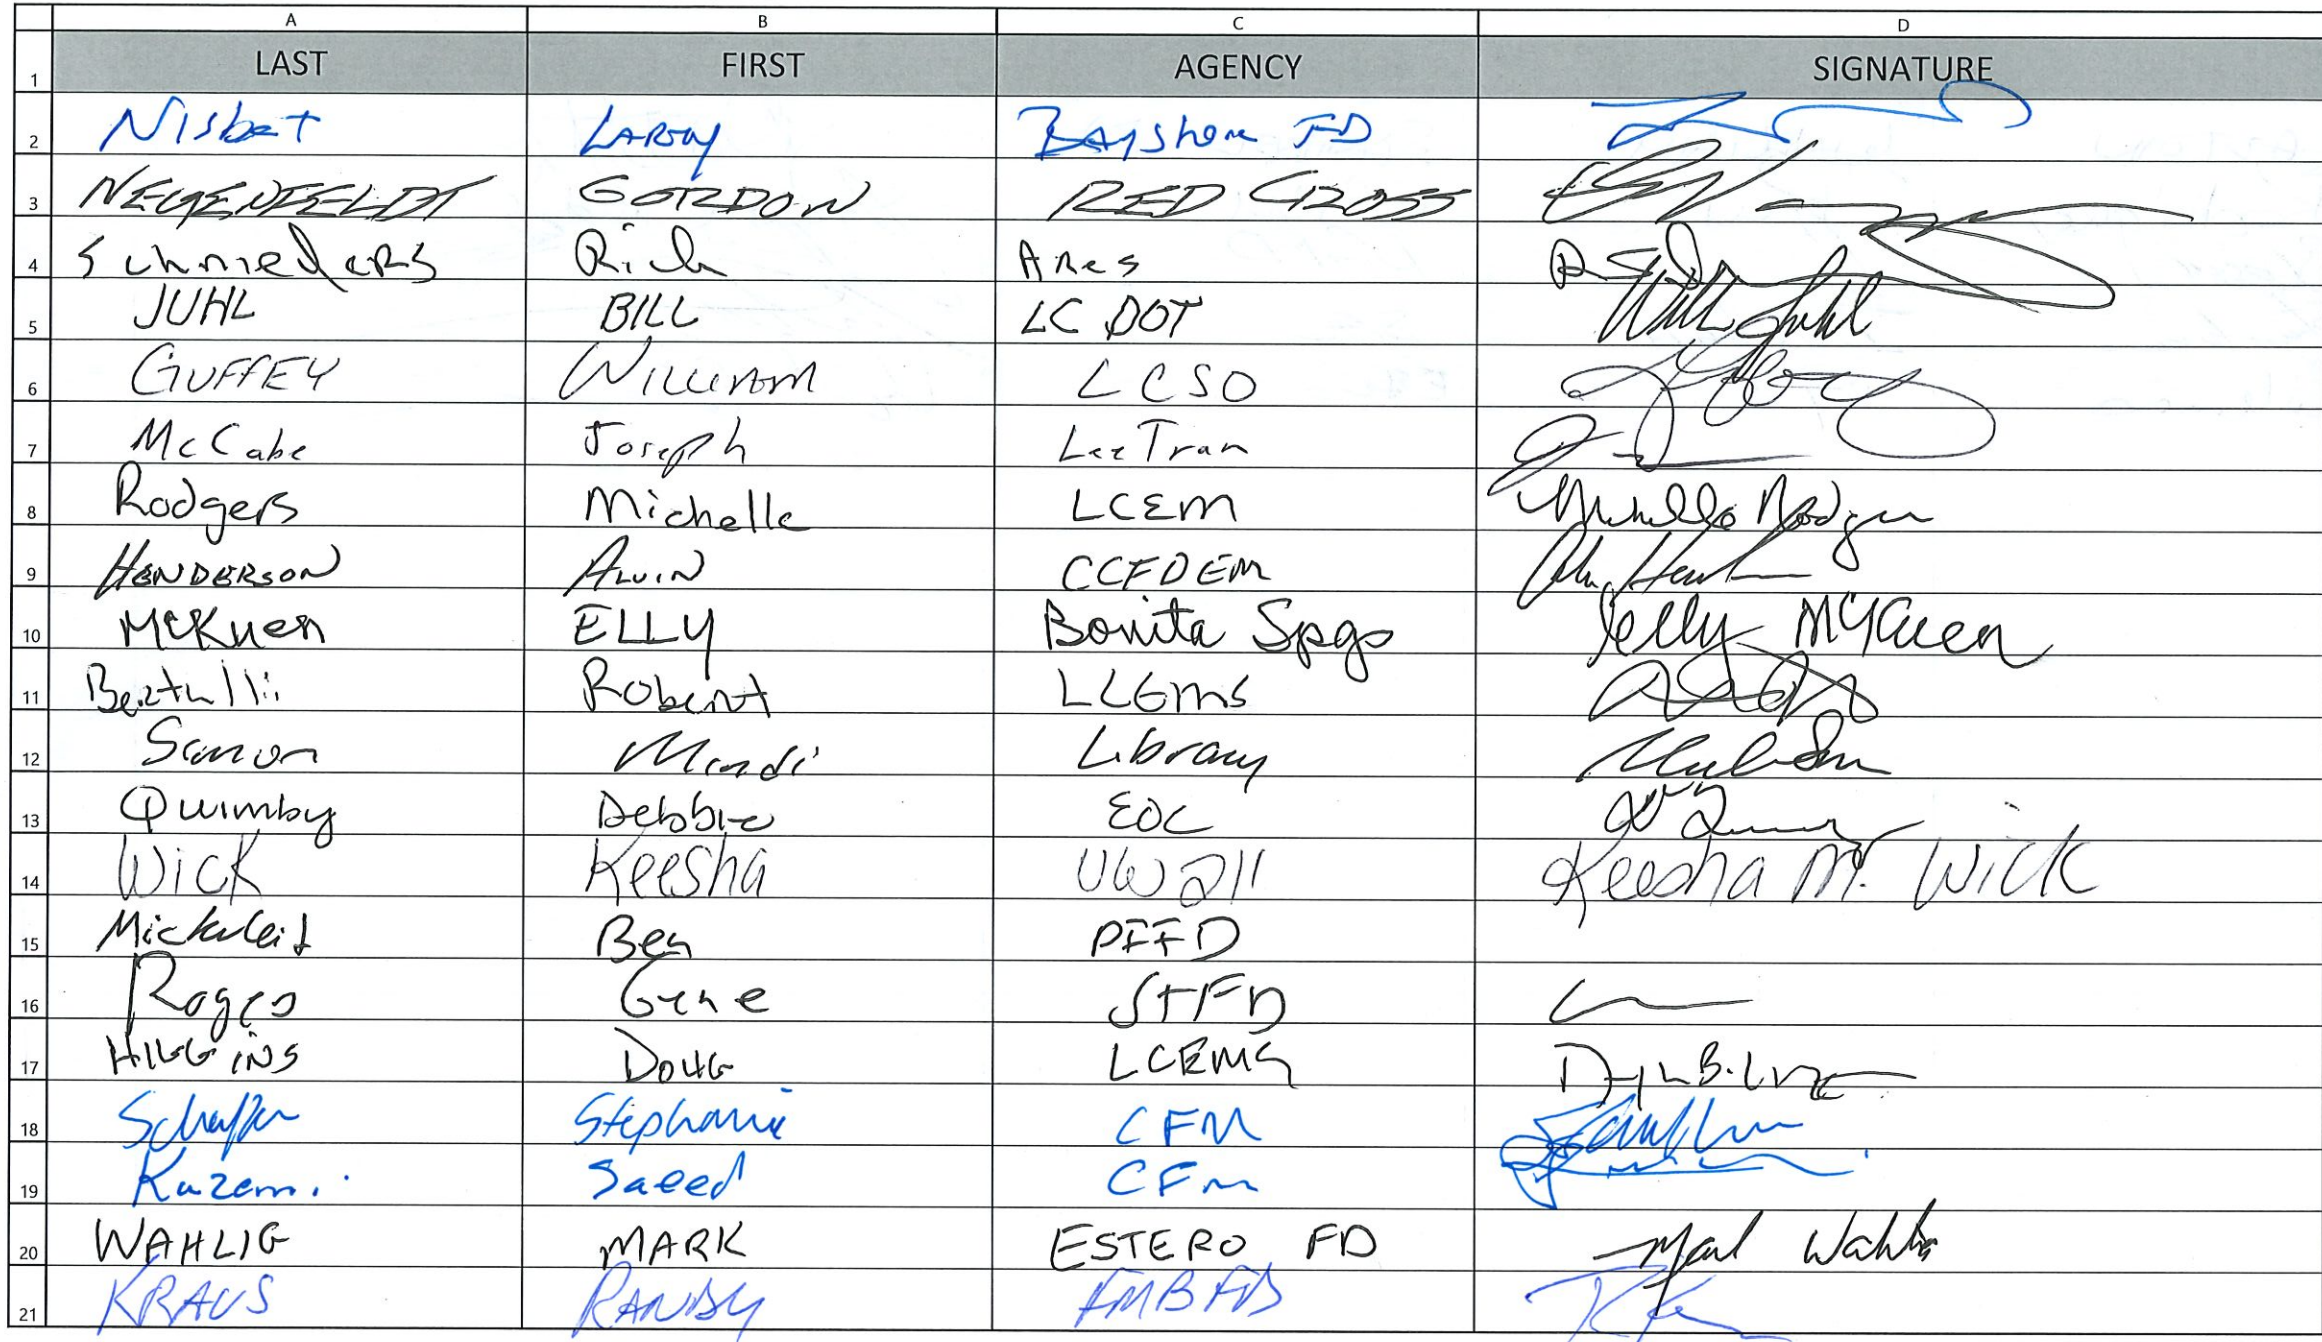 A B C D
1 LAST FIRST AGENCY SIGNATURE
2 Nisbet Larry Bayshore FD
3 NEGENFELDT GORDON RED CROSS
4 Schnieders Rich Ares
5 JUHL BILL LC DOT Will Juhl
6 GUFFEY WILLIAM LCSO
7 McCabe Joseph LeeTran
8 Rodgers Michelle LCEM Michelle Rodgers
9 HENDERSON ALVIN CCFDEM
10 McKuen ELLY Bonita Spgs Elly McKuen
11 Robert LCEMS
12 Simon Mindi Library
13 Quimby Debbie EOC
14 Wick Keesha UW 211 Keesha M. Wick
15 Mickuleit Ben PIFD
16 Rogers Gene STFD
17 HIGGINS DOUG LCEMS
18 Stephanie CFM
19 Kazemi Saeed CFM
20 WAHLIG MARK ESTERO FD Mark Wahlig
21 KRAUS RANDY FMBFD